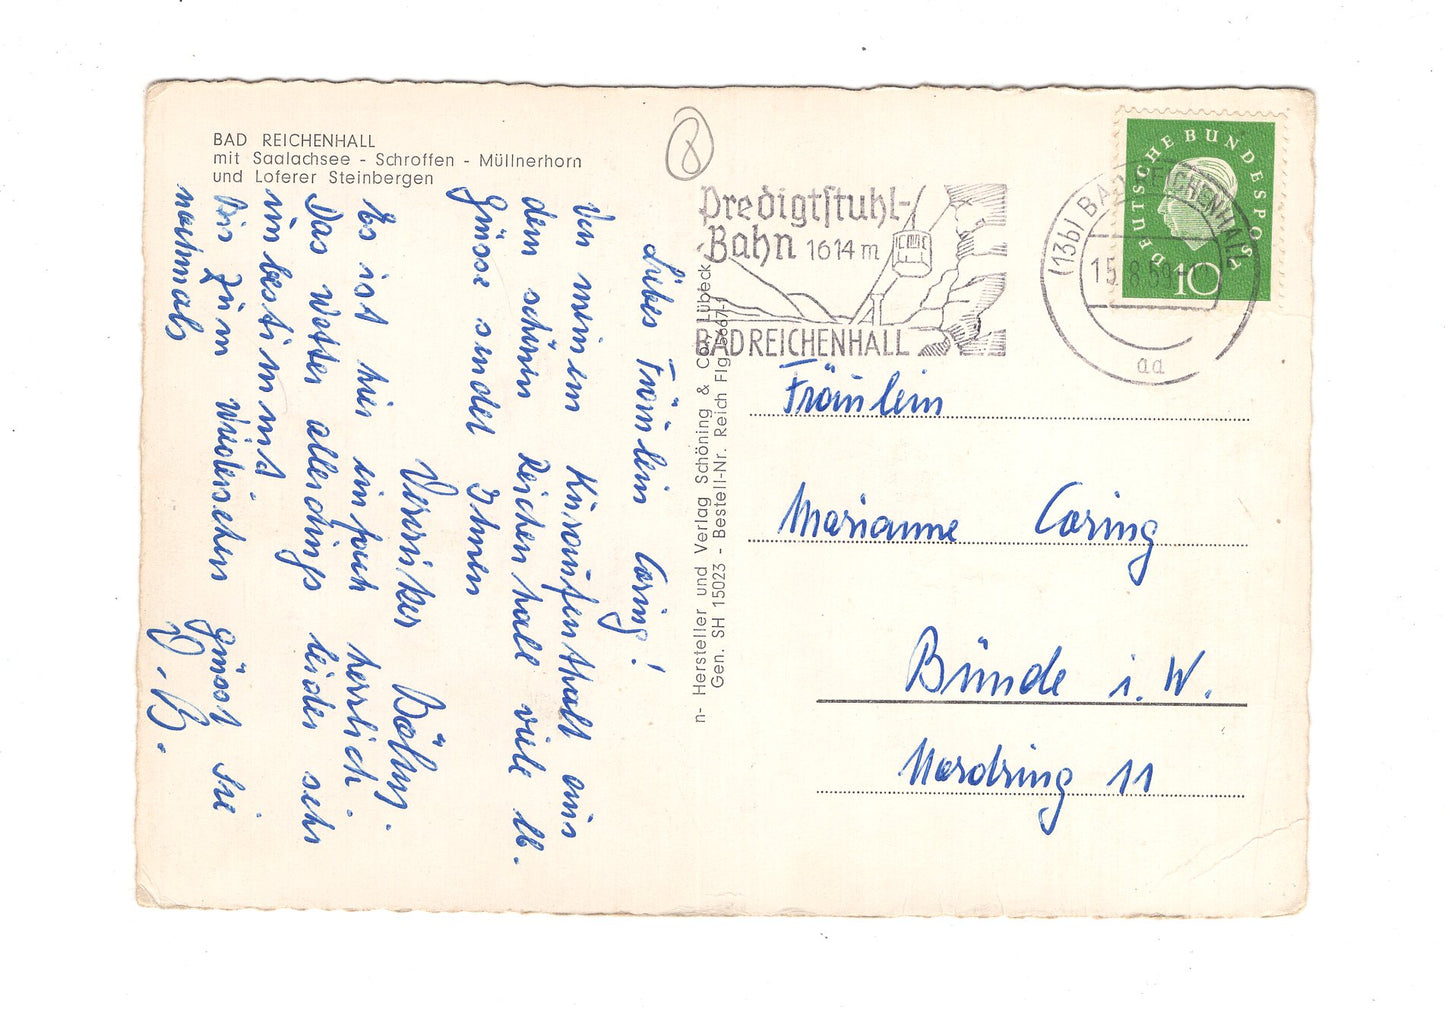 BAD REICHENHALL
mit Saalachsee - Schroffen - Müllnerhorn
und Loferer Steinbergen
8
Predigtstuhl-
Bahn 1614 m
BAD REICHENHALL
(13b) BAD REICHENHALL
15.8.59
aa
DEUTSCHE BUNDESPOST
10
Liebes Fräulein Caring!
Von meinem Kuraufenthalt aus
dem schönen Reichenhall viele lb.
Grüsse sendet Ihnen
Es ist hier einfach herrlich.
Das Wetter allerdings leider sehr
unbestimmt.
Bis zum Wiedersehen grüsst Sie
nochmals
n- Hersteller und Verlag Schöning & Co., Lübeck
Gen. SH 15023 - Bestell-Nr. Reich Flg 5667-1
Fräulein
Marianne Caring
Bünde i. W.
Nordring 11